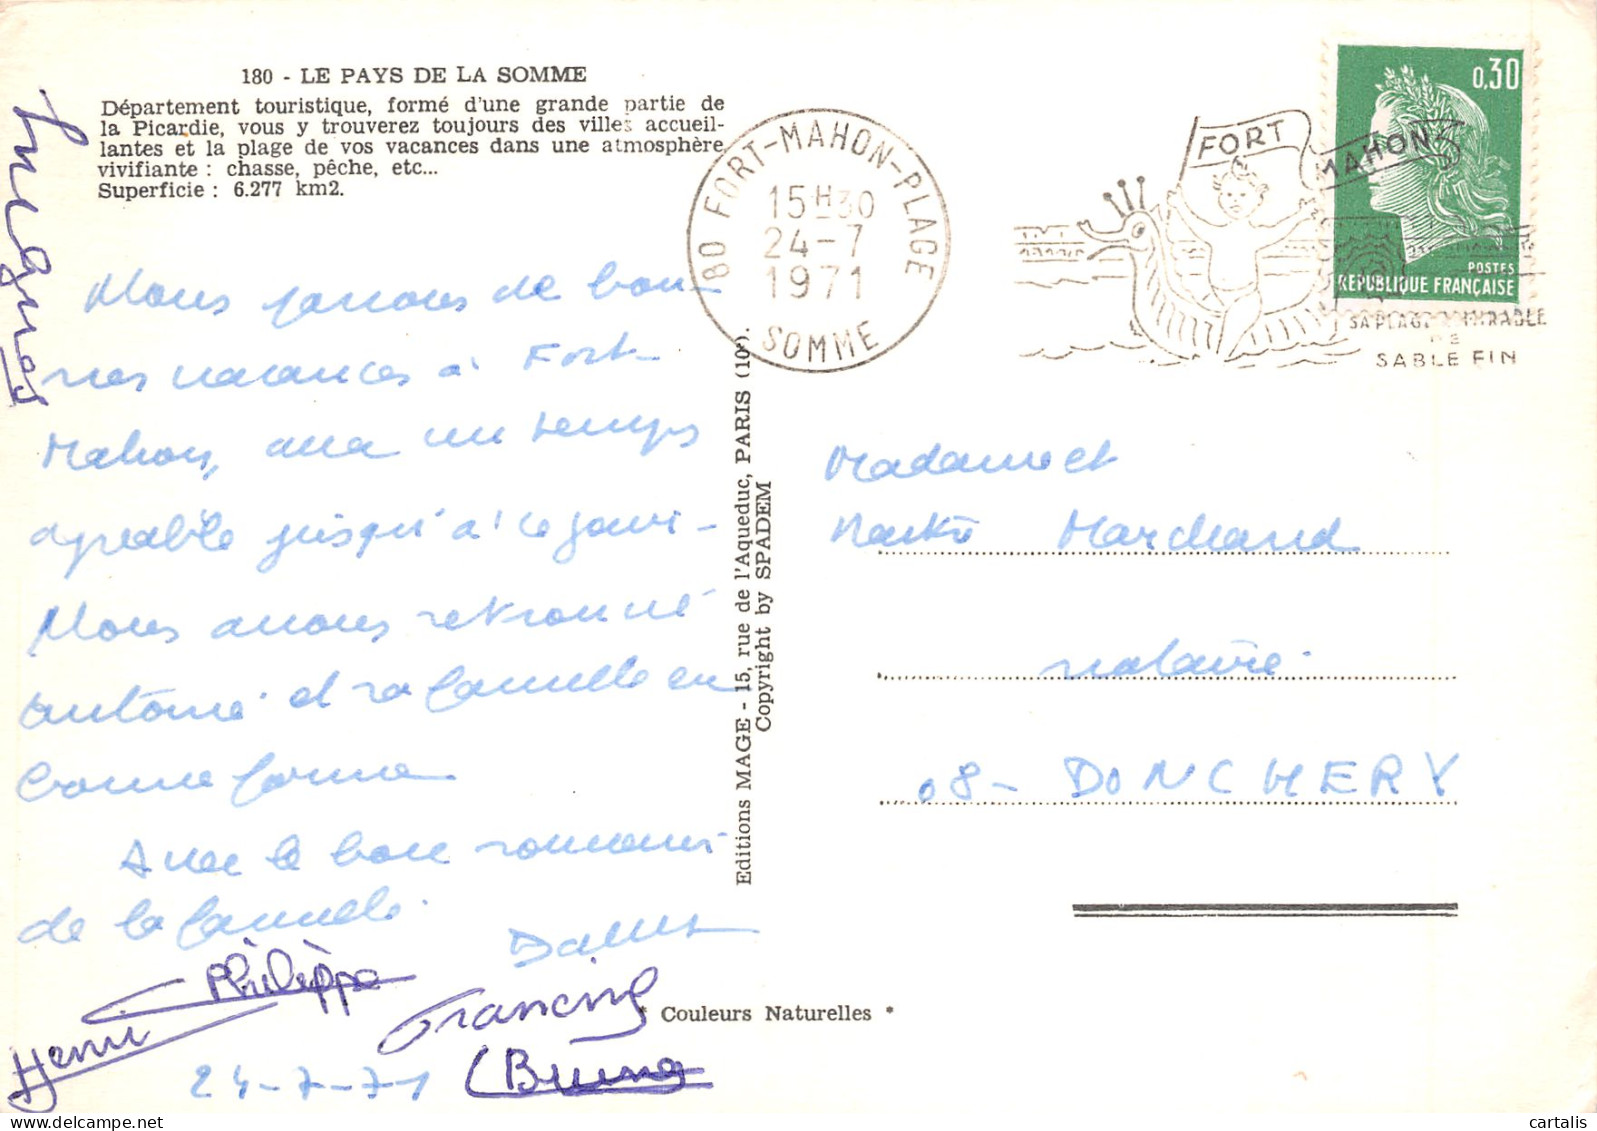 180 - LE PAYS DE LA SOMME
Département touristique, formé d'une grande partie de
la Picardie, vous y trouverez toujours des villes accueil-
lantes et la plage de vos vacances dans une atmosphère
vivifiante : chasse, pêche, etc...
Superficie : 6.277 km2.
Nous passons de bon-
nes vacances à Fort-
Mahon, avec un temps
agréable jusqu'à ce jour.
Nous avons retrouvé
Antoine et sa famille en
bonne forme
Avec le bon souvenir
de la famille.
Philippe
Henri
Francine
Bruno
24-7-71
Editions MAGE - 15, rue de l'Aqueduc, PARIS (10e).
Copyright by SPADEM
* Couleurs Naturelles *
80 FORT-MAHON-PLAGE
15H30
24-7
1971
SOMME
FORT MAHON
SA PLAGE ADMIRABLE
DE
SABLE FIN
0,30
POSTES
REPUBLIQUE FRANÇAISE
Madame et
Maître Marchand
notaire.
08 - DONCHERY
cartalis